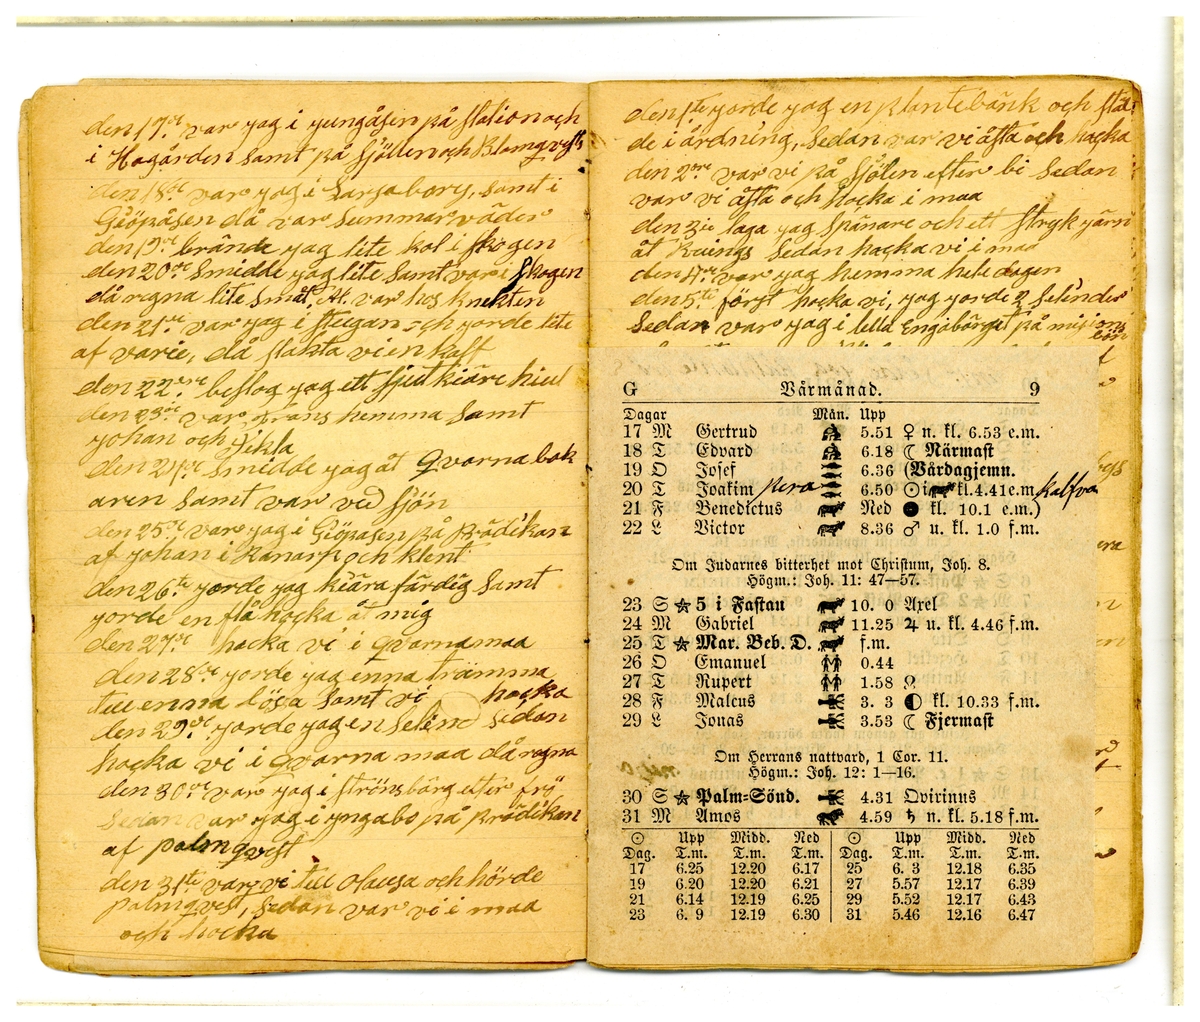 den 17de var jag i jungåsen på station och
i Hagården samt på Sjöllen och Blomqvists
den 18de var jag i Larsaborg, samt i
Giöpåsen då var summarväder
den 19de brände jag lite kol i skogen
den 20de smidde jag lite samt var i skogen
då regna lite smått, Al. var hos knekten
den 21de var jag i stugan och jorde lite
af varie, då slakta vi en kalf
den 22dre beslog jag ett sjutkiäre hiul
den 23de var Frans hemma samt
johan och Tekla
den 24de smidde jag åt qvarnabok
aren samt var ved sjön
den 25de var jag i Giöpasen på prädikan
af johan i Ramarp och klent
den 26te jorde jag kiära färdig samt
jorde en flåhacka åt mig
den 27de hacka vi i qvarnamaa
den 28de jorde jag enna trämma
till enna lösa samt vi hacka
den 29de jorde jag en selene sedan
hacka vi i qvarna maa då regna
den 30de var jag i strönsbärg efter frö
sedan var jag i yngabo på prädikan
af palmqvest
den 31te var vi till Olausa och hörde
palmqvest, sedan var vi i maa
och hacka
den 1te jorde jag en plantebänk och stäl
de i årdning, sedan var vi åsta och hacka
den 2dre var vi på sjölen efter bi sedan
var vi åsta och hacka i maa
den 3je laga jag spänare och ett strykjärn
åt Kuings sedan hacka vi i maa
den 4de var jag hemma hela dagen
den 5te först hacka vi, jag jorde 2 selinder
sedan var jag i lella Engabärget på misions
bön
G Vårmånad. 9
Dagar Mån. Upp
17 M Gertrud 5.51 ♀ n. kl. 6.53 e.m.
18 T Edvard 6.18 ☾ Närmast
19 O Josef 6.36 (Vårdagjemn.
20 T Joakim pera 6.50 ☉ i kl. 4.41 e.m. kalfva
21 F Benedictus Ned ● kl. 10.1 e.m.)
22 L Victor 8.36 ♂ u. kl. 1.0 f.m.
Om Judarnes bitterhet mot Christum, Joh. 8.
Högm.: Joh. 11: 47—57.
23 S ★ 5 i Fastan 10. 0 Axel
24 M Gabriel 11.25 ♃ u. kl. 4.46 f.m.
25 T ★ Mar. Beb. D. f.m.
26 O Emanuel 0.44
27 T Rupert 1.58 ☊
28 F Malcus 3. 3 ◐ kl. 10.33 f.m.
29 L Jonas 3.53 ☾ Fjermast
Om Herrans nattvard, 1 Cor. 11.
Högm.: Joh. 12: 1—16.
30 S ★ Palm=Sönd. 4.31 Qvirinus
31 M Amos 4.59 ♄ n. kl. 5.18 f.m.
☉ Upp Midd. Ned ☉ Upp Midd. Ned
Dag. T.m. T.m. T.m. Dag. T.m. T.m. T.m.
17 6.25 12.20 6.17 25 6. 3 12.18 6.35
19 6.20 12.20 6.21 27 5.57 12.17 6.39
21 6.14 12.19 6.25 29 5.52 12.17 6.43
23 6. 9 12.19 6.30 31 5.46 12.16 6.47